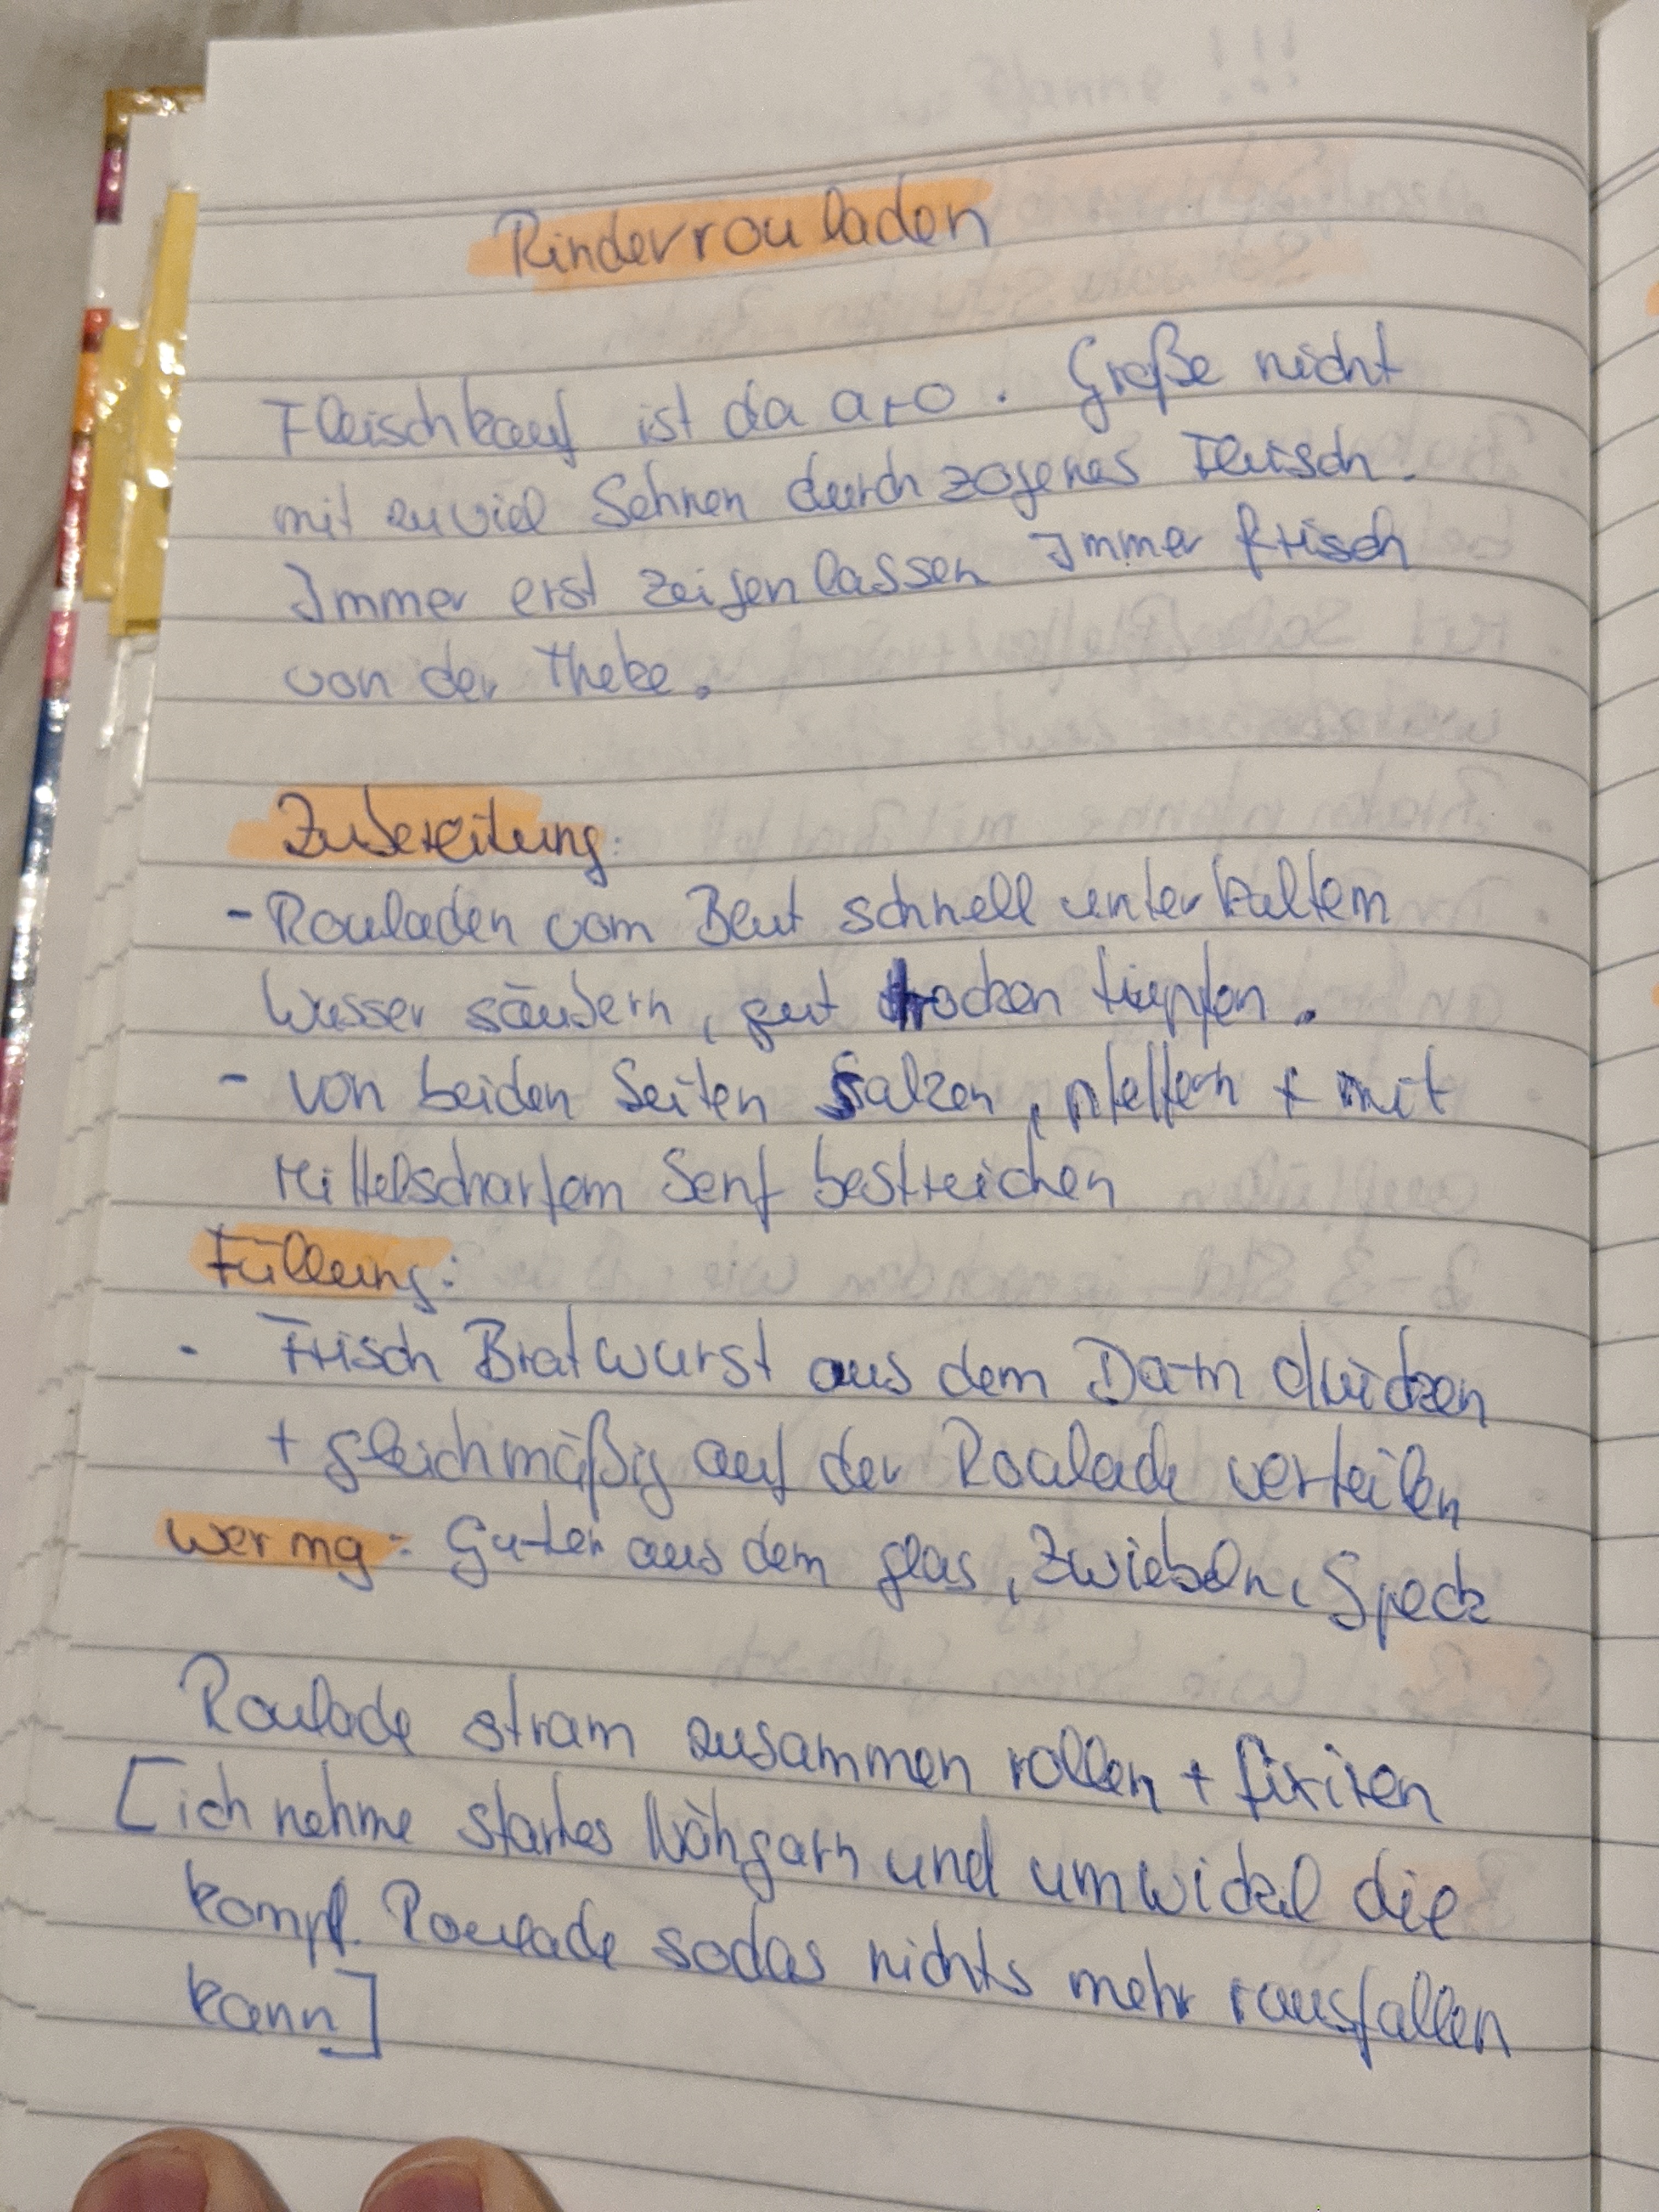 Rinderrouladen
Fleischkauf ist da a+o. Große nicht
mit zuviel Sehnen durchzogenes Fleisch.
Immer erst zeigen lassen Immer frisch
von der Theke.
Zubereitung:
- Rouladen vom Blut schnell unter kaltem
Wasser säubern, gut trocken tupfen.
- von beiden Seiten Salzen, pfeffern + mit
Mittelscharfem Senf bestreichen
Füllung:
- Frisch Bratwurst aus dem Darm drücken
+ gleichmäßig auf der Roulade verteilen
Gurken aus dem glas, Zwiebeln, Speck
Roulade stram zusammen rollen + fixiren
[ich nehme starkes Nähgarn und umwickel die
kompl. Roulade sodas nichts mehr rausfallen
kann]